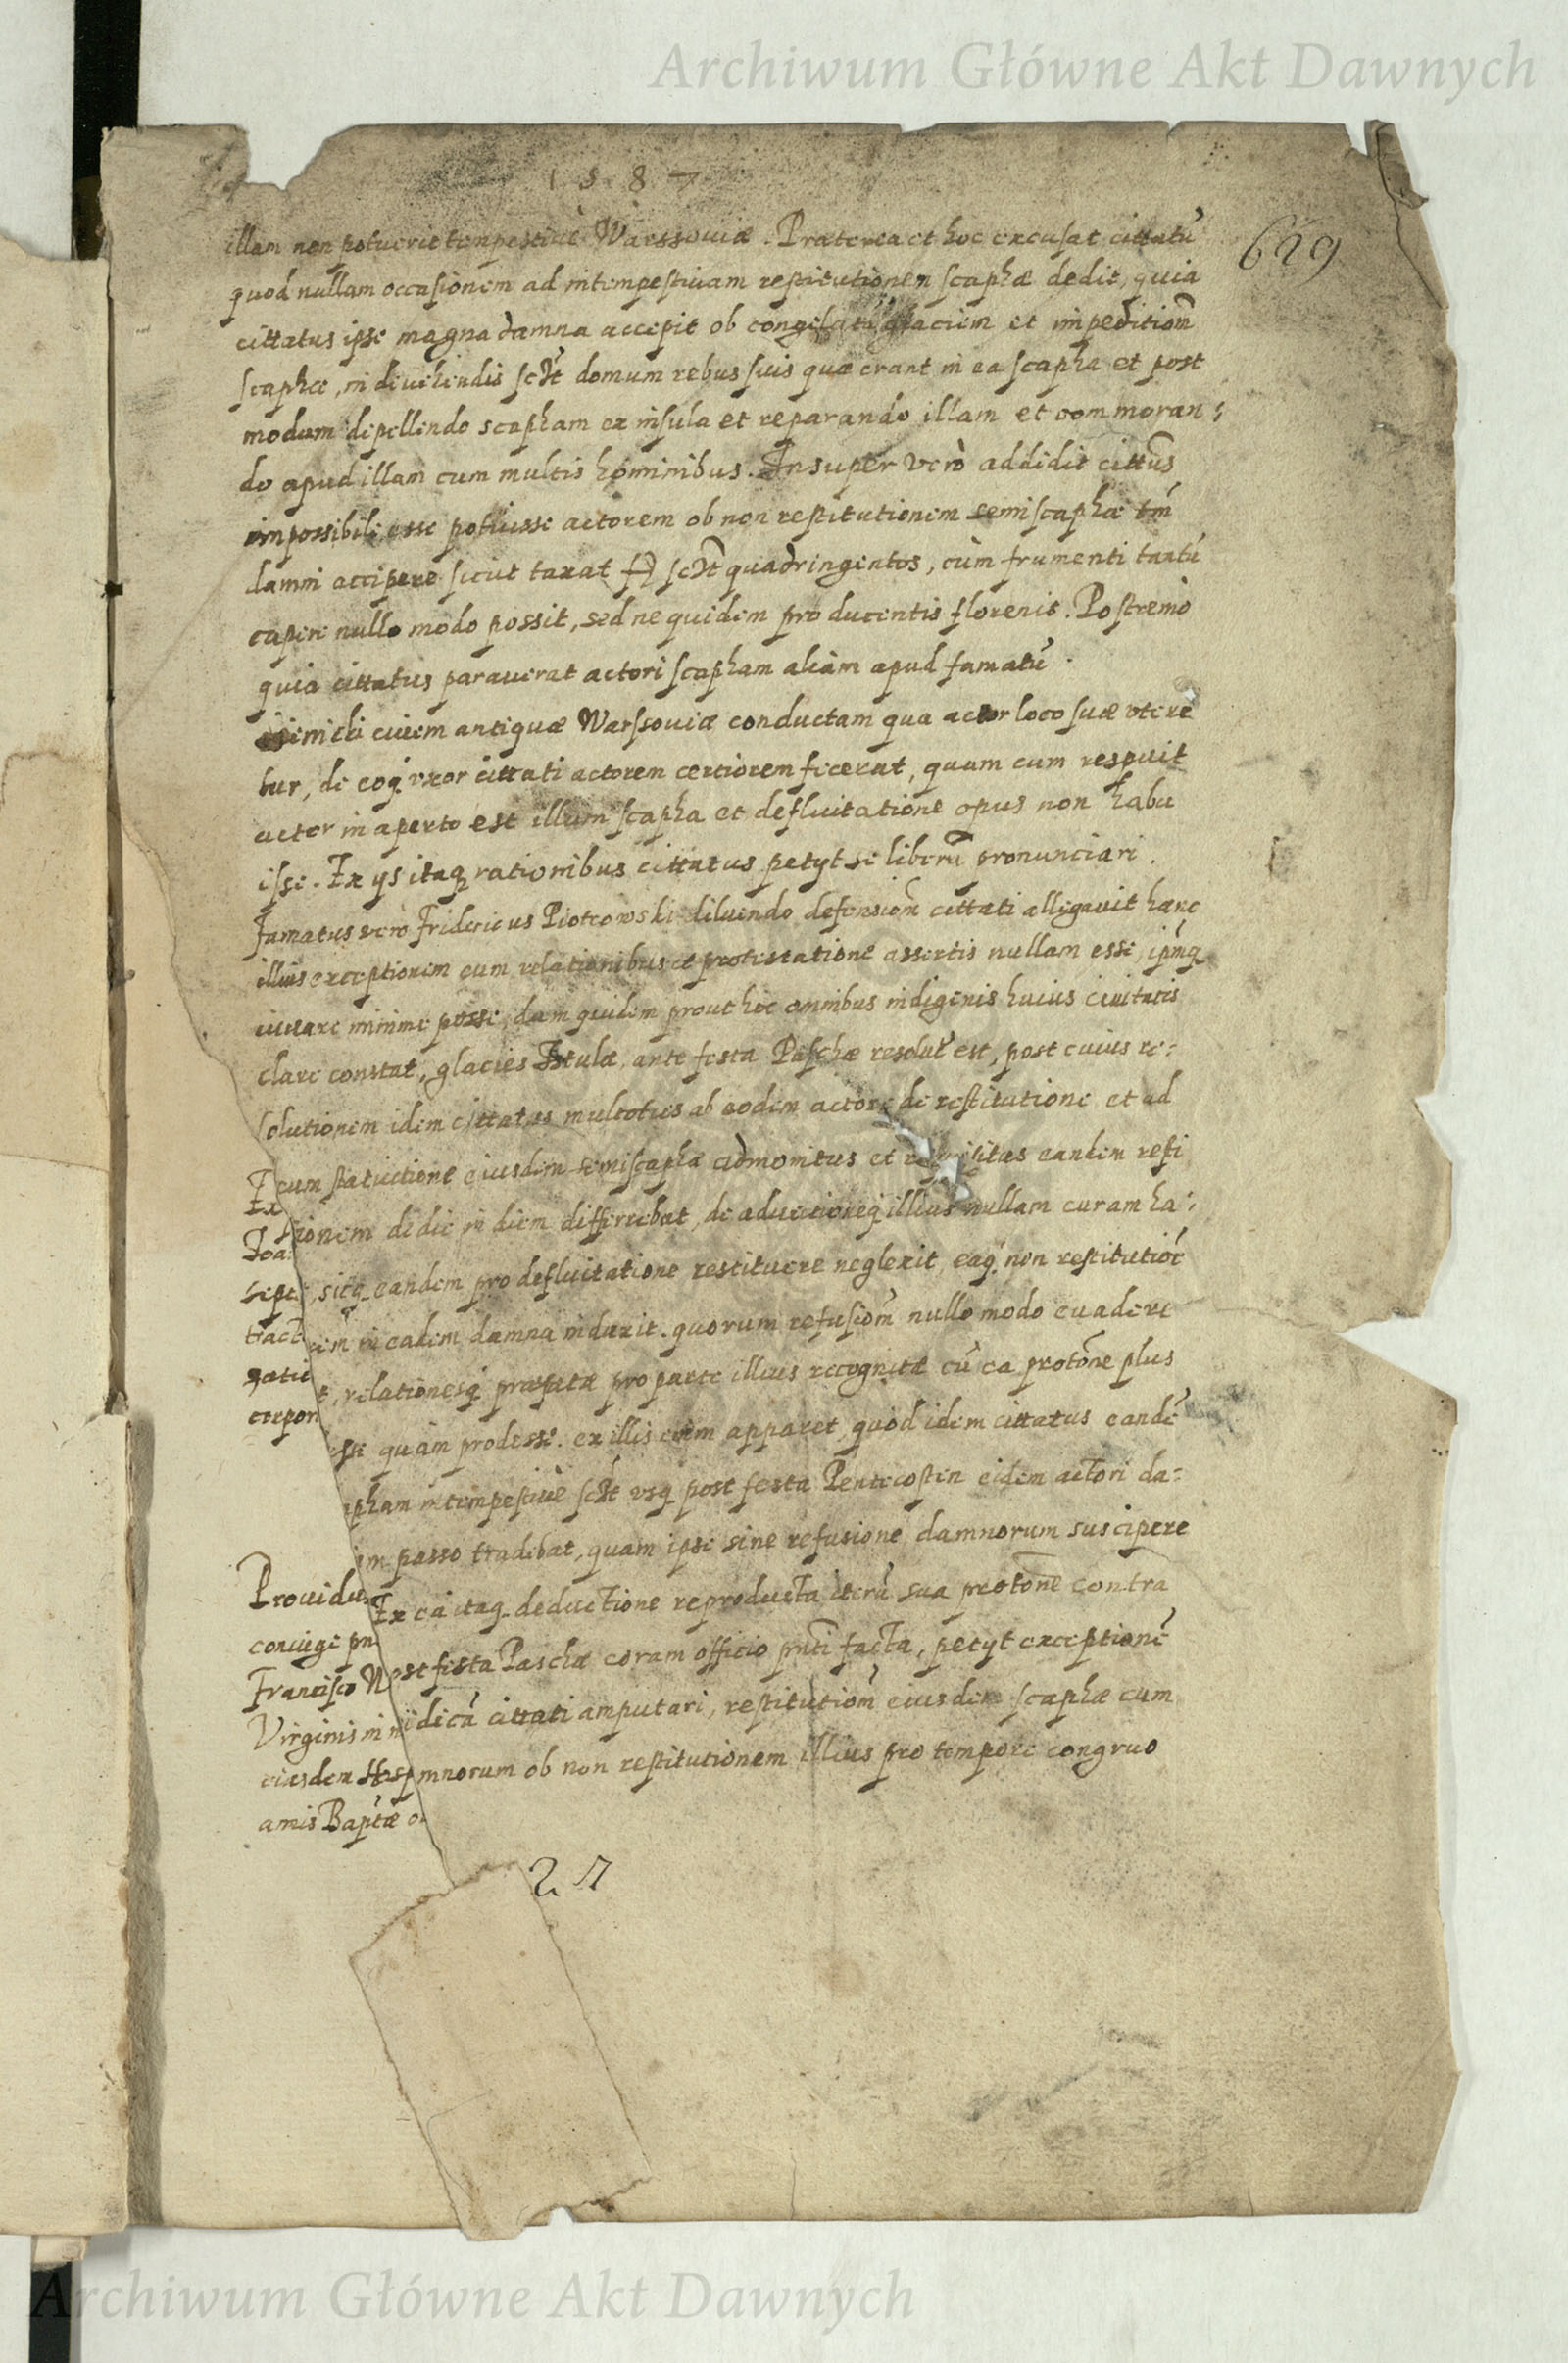 Archiwum Główne Akt Dawnych
1587
629
illam non potuerit tempestiuè Warssouiæ. Præterea et hoc excusat cittatũ
quod nullam occasionem ad intempestiuam restitutionem scaphæ dedit, quia
cittatus ipse magna damna accepit ob congelatã glaciem et impeditioñ
scaphæ, in deuehendis sclt domum rebus suis quæ erant in ea scapha et post
modum depellendo scapham ex insula et reparando illam et commoran:
do apud illam cum multis hominibus. Insuper verò addidit cittus
impossibile esse potuisse actorem ob non restitutionem semiscaphæ tm
damni accipere sicut taxat sclt quadringentos, cùm frumenti tantũ
capere nullo modo possit, sed ne quidem pro ducentis florenis. Postremò
quia cittatus parauerat actori scapham aliam apud famatũ
ciuem antiquæ Warssouiæ conductam qua actor loco suæ vtere
tur, de eoq vxor cittati actorem certiorem fecerat, quam cum respuit
actor in aperto est illum scapha et defluitatione opus non habu
isse. Ex ys itaq rationibus cittatus petyt se liberũ pronunciari.
Famatus verò Fridericus Piotrowski diluendo defensioñ cittati allegauit hanc
illius exceptionem cum relationibus et protestatione assertis nullam esse, ipmq
iuuare minime posse, dam quidem prout hoc omnibus indigenis huius ciuitatis
clare constat, glacies Istulæ, ante festa Paschæ resolut est, post cuius re:
solutionem idem cittatus multoties ab eodem actore de restitutione et ad
statuitione eiusdem semiscaphæ admonitus et eandem resti
ionem de die in diem differrebat, de aduectioneq illius nullam curam ha:
, sicq eandem pro defluitatione restituere neglexit, eaq non restitutioẽ
in eadem damna induxit. quorum refusioñ nullo modo euadere
, relationesq præfatæ pro parte illius recognitæ cũ ea protone plus
esse quàm prodesse. ex illis enim apparet, quod idem cittatus eandẽ
apham intempestiuè sclt vsq post festa Pentecosten eidem actori da:
passo tradebat, quam ipse sine refusione damnorum suscipere
Ex ea itaq deductione reproducta iterũ sua protone contra
ost festa Paschæ coram officio pnti facta, petyt exceptionẽ
idicã cittati amputari, restitutioñ eiusdem scaphæ cum
mnorum ob non restitutionem illius pro tempore congruo
Ex
Joa
sepe
tract
gatit
corpor
Prouidu
coniuge pn
Francisco N
Virginis in
eiusdem
amis Baptæ
27
Archiwum Główne Akt Dawnych